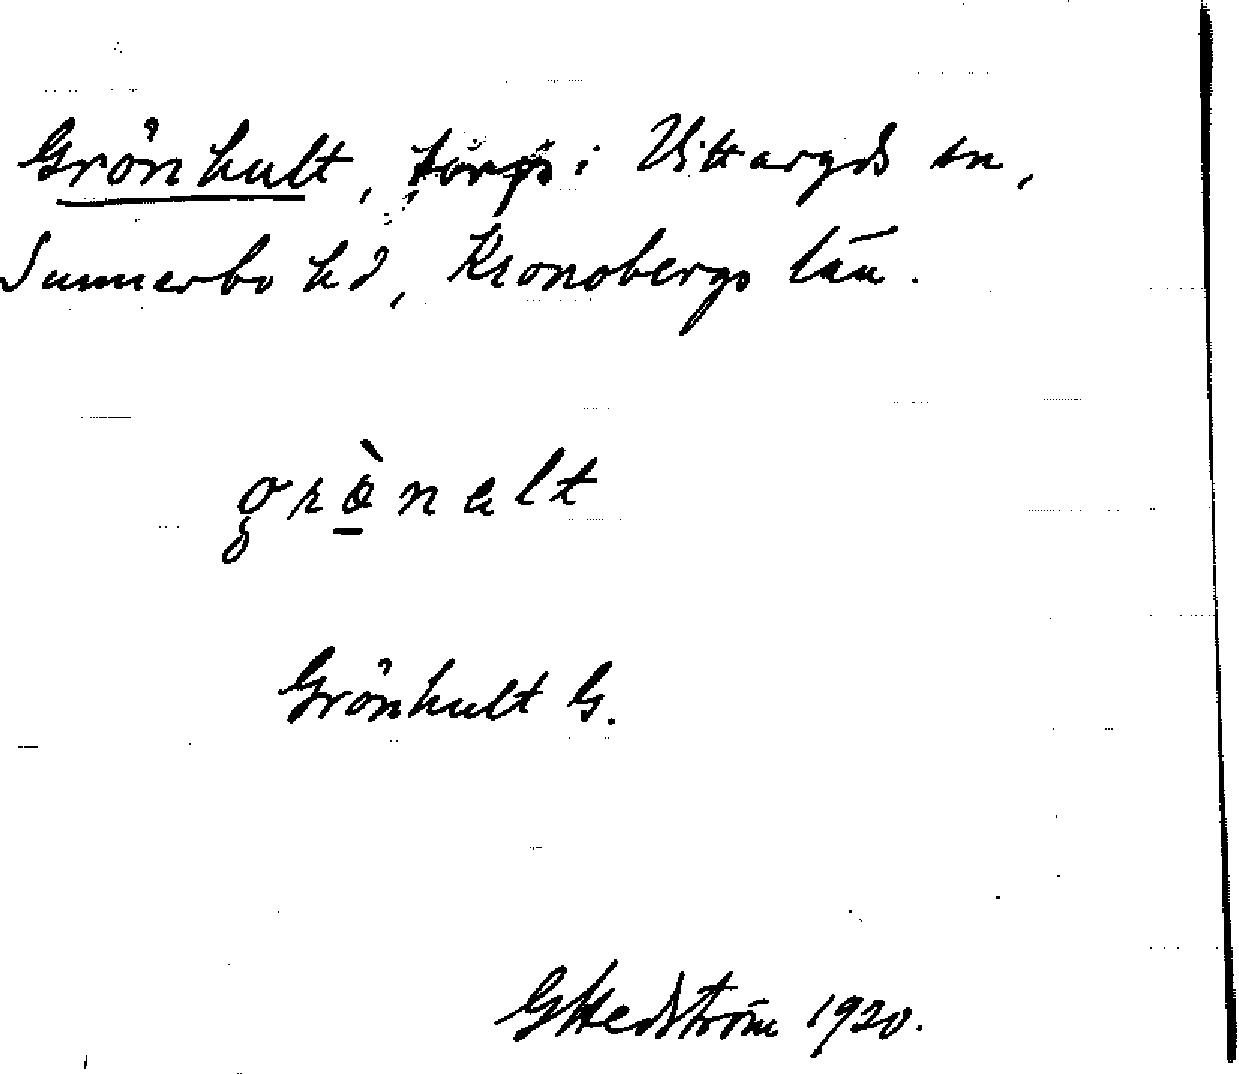 Grönhult, torp i Vittaryds sn,
Sunnerbo hd, Kronobergs län.
grö̀nalt
Grönhult G.
GHedström 1920.